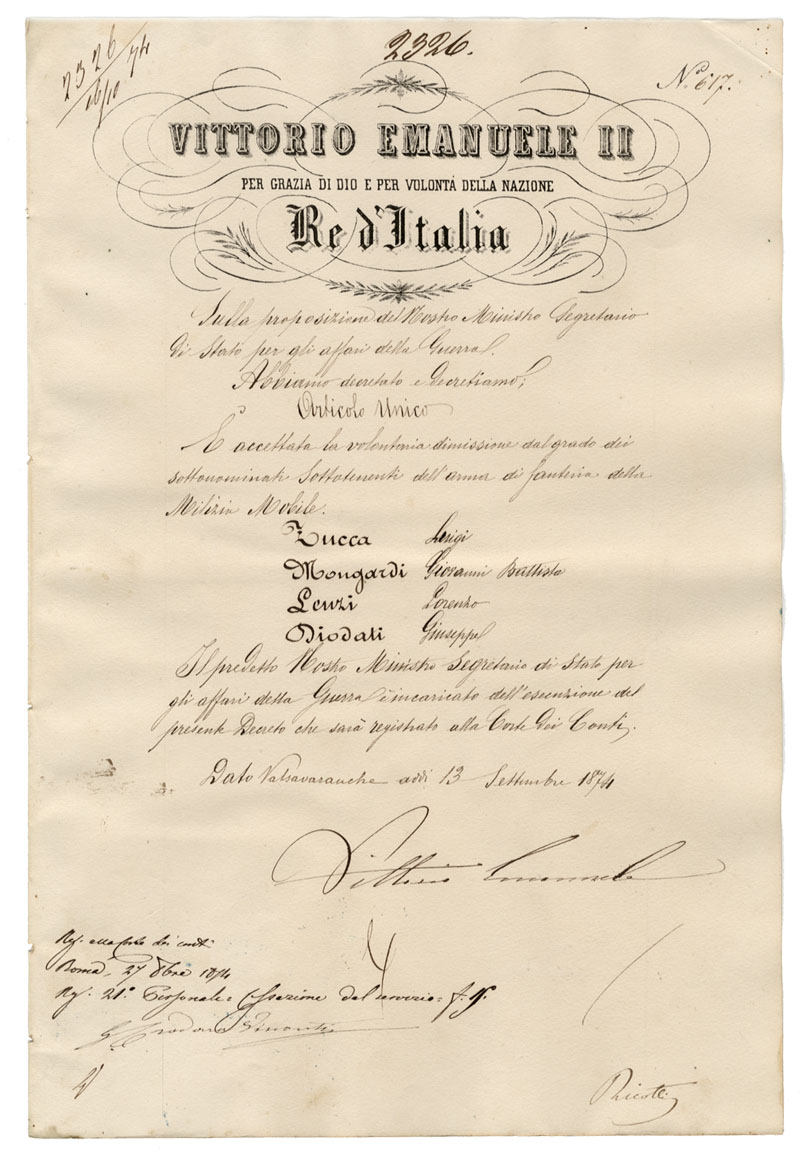 2326/74
16/10
2326.
N.° 617.
VITTORIO EMANUELE II
PER GRAZIA DI DIO E PER VOLONTÀ DELLA NAZIONE
Re d'Italia
Sulla proposizione del Nostro Ministro Segretario
di Stato per gli affari della Guerra.
Abbiamo decretato e decretiamo;
Articolo Unico
E' accettata la volontaria dimissione dal grado dei
sottonominati Sottotenenti dell'arma di fanteria della
Milizia Mobile.
Zucca Luigi
Mongardi Giovanni Battista
Lenzi Lorenzo
Diodati Giuseppe
Il predetto Nostro Ministro Segretario di Stato per
gli affari della Guerra è incaricato dell'esecuzione del
presente Decreto che sarà registrato alla Corte dei Conti.
Dato Valsavaranche addì 13 Settembre 1874
Vittorio Emanuele
Reg. alla Corte dei conti
Roma, 27 8bre 1874
Reg. 21° Personale: Cessazione dal servizio: f.
Ricotti